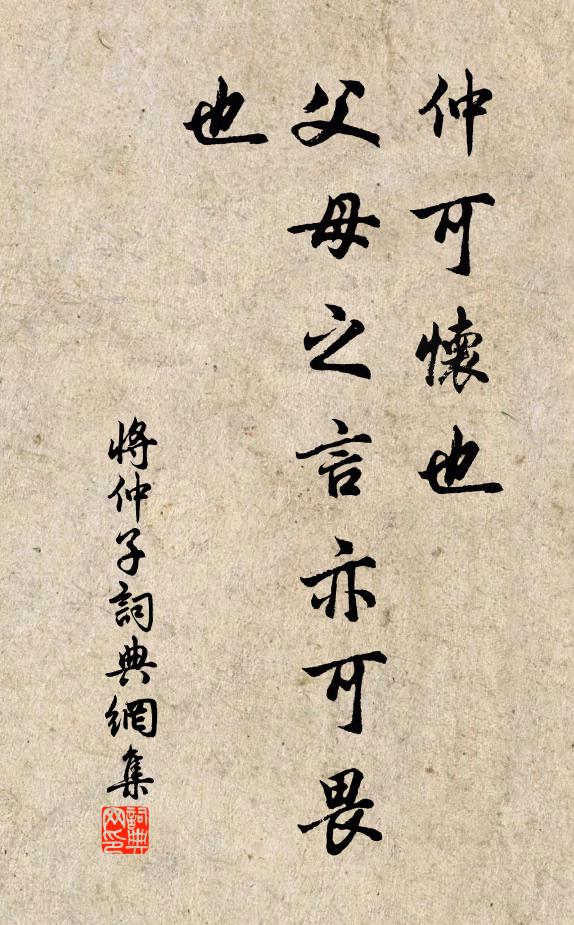 仲可懷也
父母之言亦可畏
也
將仲子詞典網集
詞典
网印